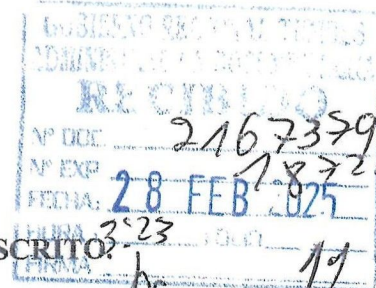 GOBIERNO REGIONAL TUMBES
RECIBIDO
Nº DOC. 2167379
Nº EXP 1872
FECHA: 28 FEB 2025
HORA: 3:23 FOLIO
SCRITO:
FIRMA: 11